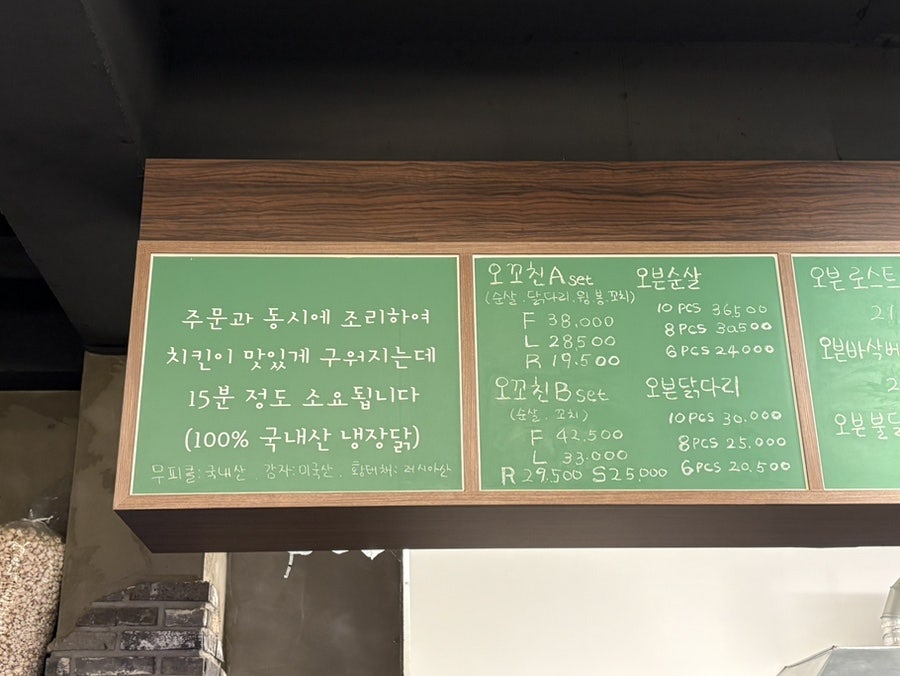 주문과 동시에 조리하여
치킨이 맛있게 구워지는데
15분 정도 소요됩니다
(100% 국내산 냉장닭)
무피클:국내산 . 감자:미국산 . 황태채: 러시아산
오꼬친A set
(순살 . 닭다리.윙 봉 꼬치)
F 38,000
L 28,500
R 19.500
오꼬친B set
(순살 . 꼬치)
F 42,500
L 33.000
R 29.500 S 25,000
오븐순살
10 PCS 36500
8 PCS 30500
6 PCS 24000
오븐닭다리
10 PCS 30.000
8 PCS 25.000
6 PCS 20,500
오븐로스트
오븐바삭